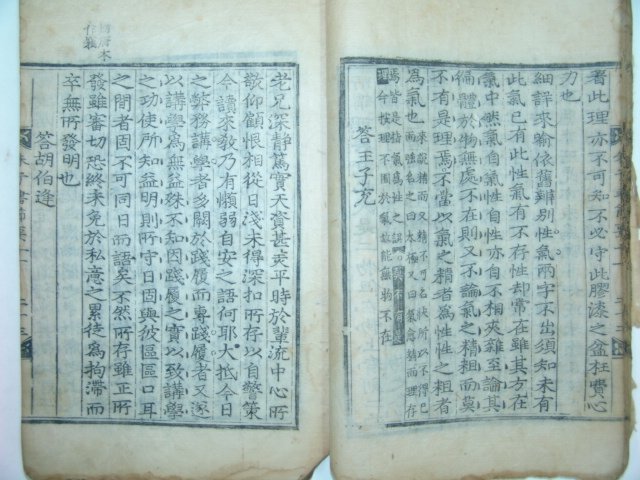 者此理亦不可知不必守此膠漆之盆枉費心
力也
細詳來喩依舊辨別性氣兩字不出須知未有
此氣已有此性氣有不存性却常在雖其方在
氣中然氣自氣性自性亦自不相夾雜至論其
徧體於物無處不在則又不論氣之精粗而莫
不有是理焉不當以氣之精者爲性性之粗者
爲氣也 來喩精而又精不可名狀所以不得已
而强名之曰太極又曰氣愈精而理存
焉皆是指氣爲性之誤
答王子充
老兄深靜篤實天資甚平時於輩流中心所
敬仰顧恨相從日淺未得深扣所存以自警策
今讀來敎乃有懶弱自安之語何耶大抵今日
之弊務講學者多闕於踐履而專踐履者又遂
以講學爲無益殊不知因踐履之實以致講學
之功使所知益明則所守日固與彼區區口耳
之間者固不可同日而語矣不然所存雖正所
發雖審切恐終未免於私意之累徒爲拘滯而
卒無所發明也
答胡伯逢